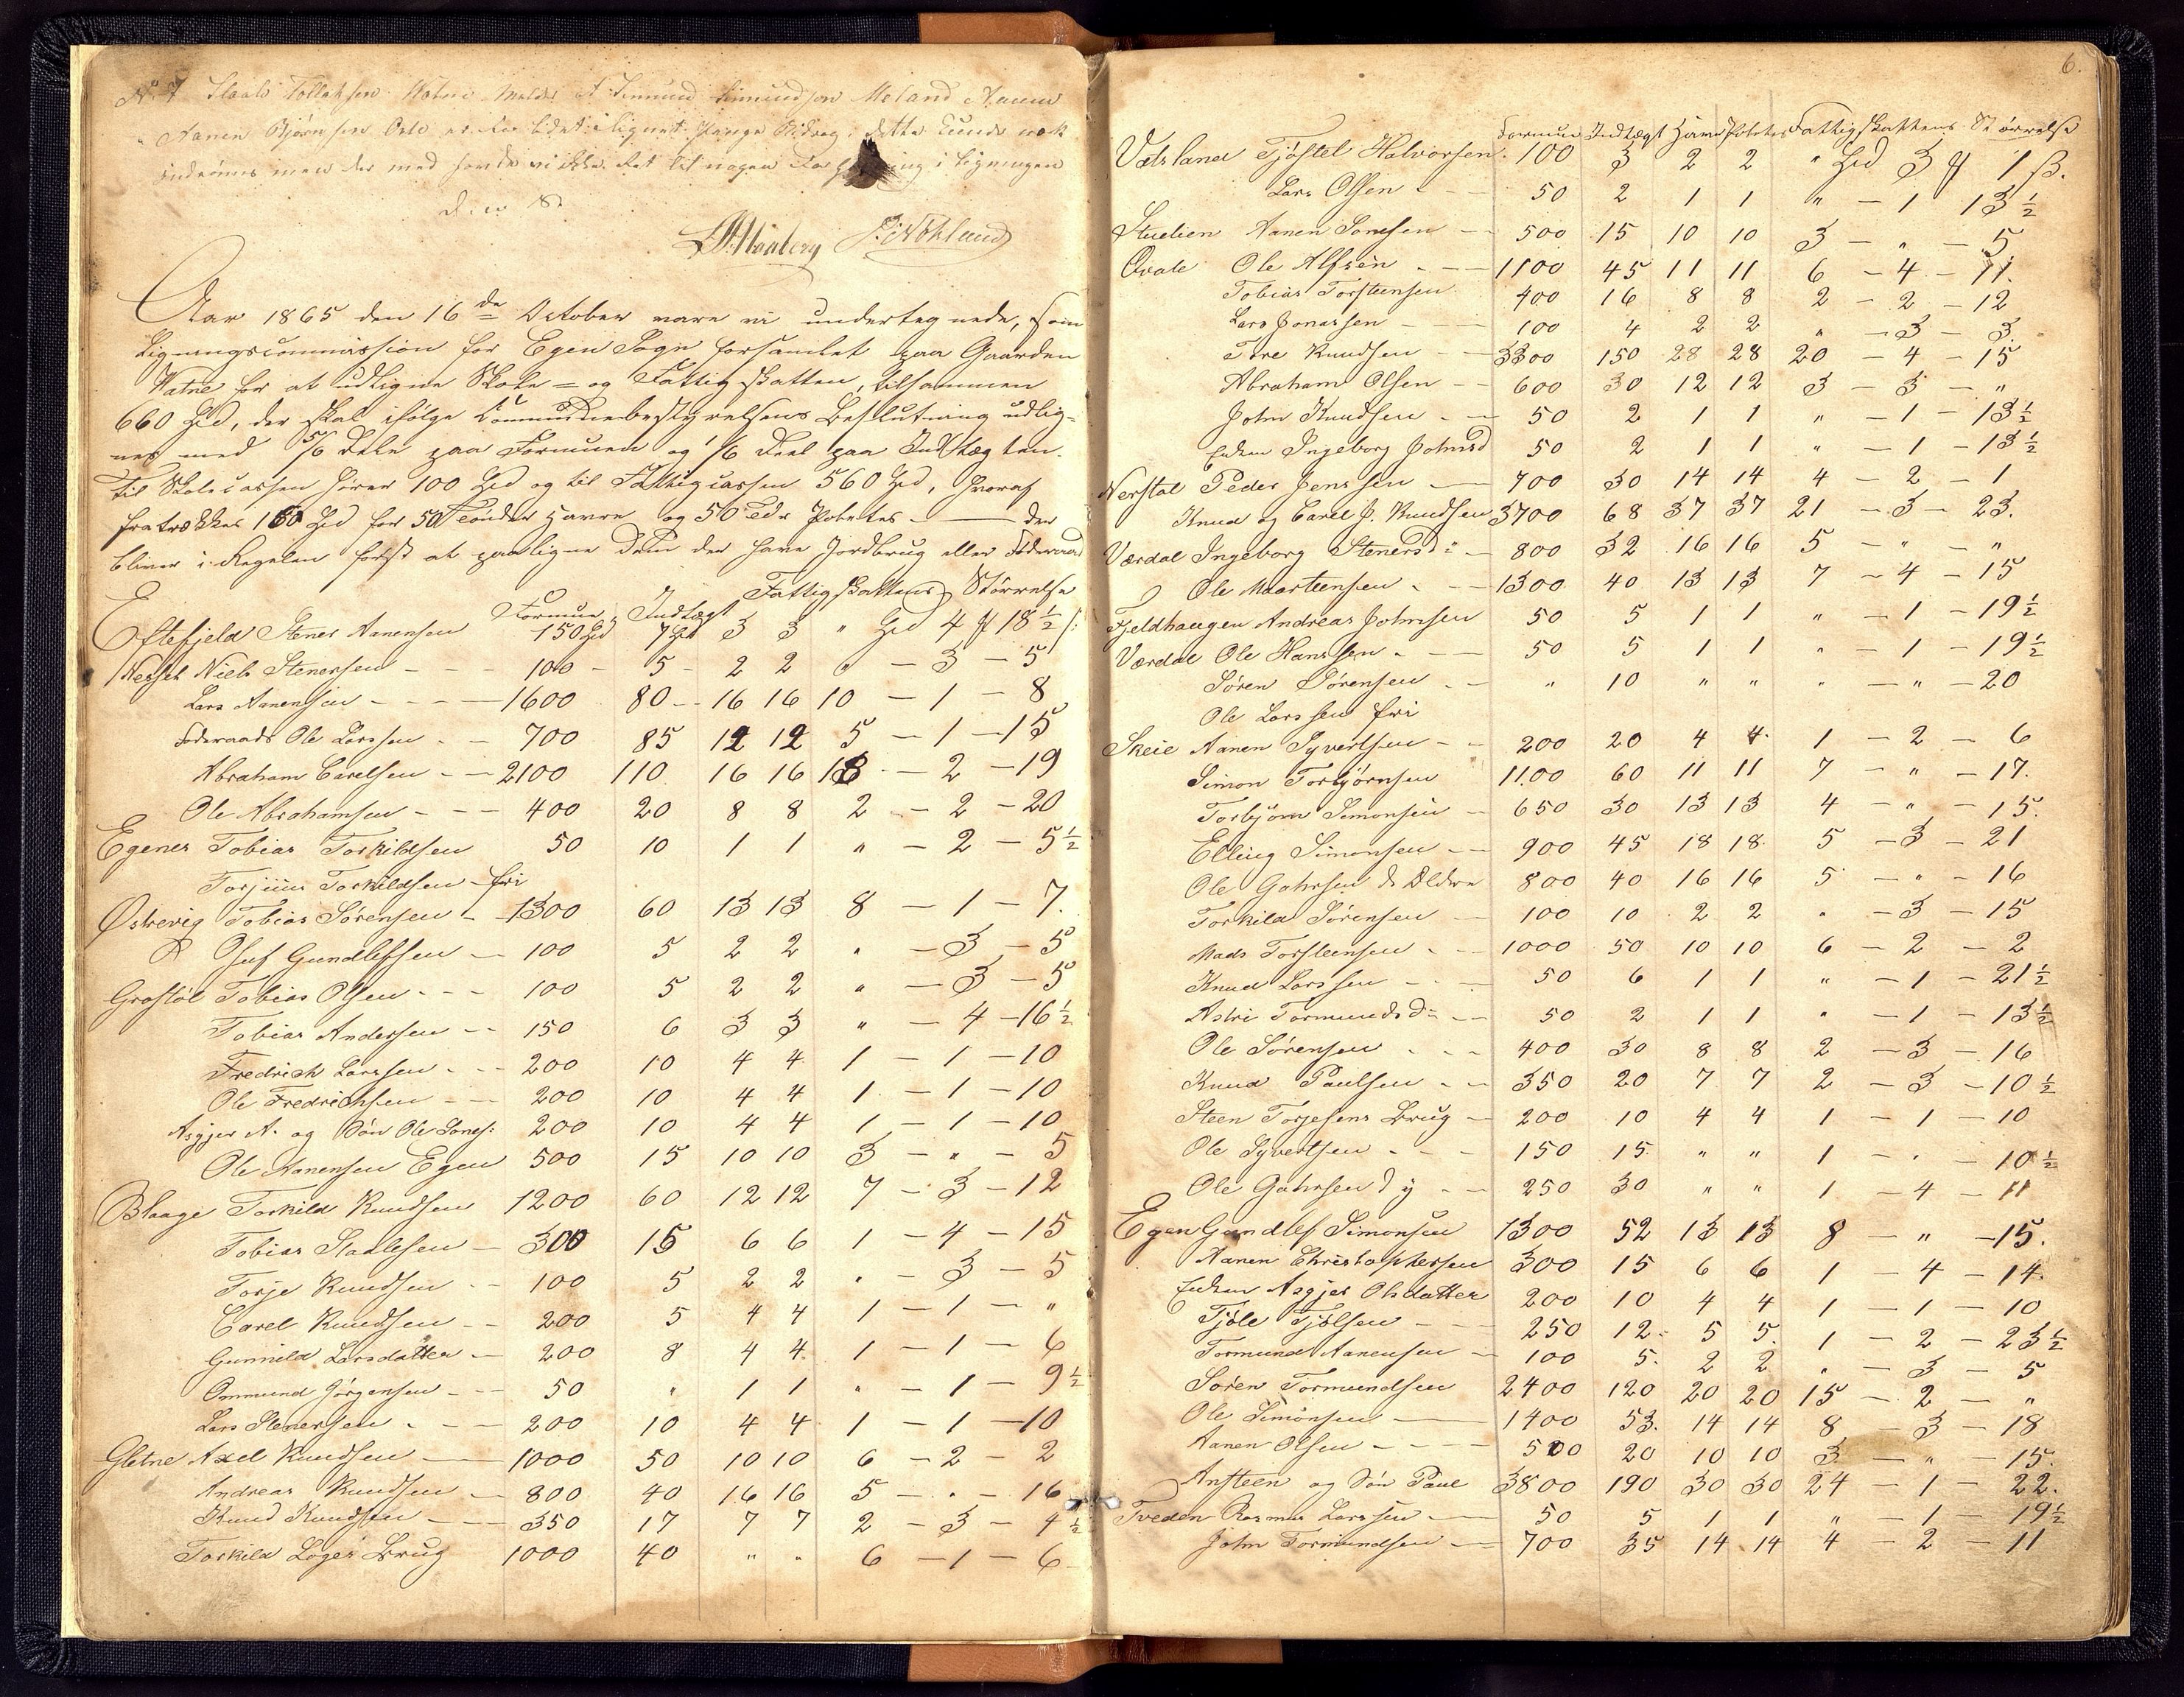 Aanen Bjørnsen Oslo
Aar 1865 den 16de October vare vi undertegnede, som
Ligningscommission for Egen Sogn forsamlet paa Gaarden
Watne for at udligne Skole= og Fattigskatten, tilsammen
660 Spd, der skal ifølge Communebestyrelsens Beslutning udlig=
nes med 5/6 Dele paa Formuen og 1/6 Deel paa Indtægten.
Til Skolecassen hører 100 Spd og til Fattigcassen 560 Spd, hvoraf
fratrækkes 160 Spd for 50 Tønder Havre og 50 Tdr Potetes - der
bliver i Regelen først at paaligne dem der have Jordbrug eller Føderaad
Formue Indtægt Fattigskattens Størrelse
Eftefjeld Stener Aanensen 150 Spd 7 Spd 3 3 " Spd 4 18½
Nesset Niels Stenersen - 100 - 5 - 2 2 " - 3 - 5
Lars Aanensen - 1600 80 - 16 16 10 - 1 - 8
Føderaads Ole Larssen - 700 85 12 12 5 - 1 - 15
Abraham Carelsen - 2100 110 16 16 13 - 2 - 19
Ole Abrahamsen - 400 20 8 8 2 - 2 - 20
Egenes Tobias Torkildsen 50 10 1 1 " - 2 - 5½
Torjuus Torkildsen - fri
Østrevig Tobias Sørensen - 1300 60 13 13 8 - 1 - 7.
Gundlefsen - 100 5 2 2 " - 3 - 5
Grostøl Tobias Olsen - 100 5 2 2 " - 3 - 5
Tobias Andersen - 150 6 3 3 " - 4 - 16½
Fredrich Larssen - 200 10 4 4 1 - 1 - 10
Ole Fredrichsen - 200 10 4 4 1 - 1 - 10
Asgjer A. og Søn Ole 200 10 4 4 1 - 1 - 10
Ole Aanensen Egen 500 15 10 10 3 - " - 5
Blaage Torkild Knudsen 1200 60 12 12 7 - 3 - 12
Tobias Staalesen - 300 15 6 6 1 - 4 - 15
Torje Knudsen - 100 5 2 2 " - 3 - 5
Carel Knudsen - 200 5 4 4 1 - 1 - "
Gunnild Larsdatter - 200 8 4 4 1 - 1 - 6
Ommund Jørgensen - 50 " 1 1 " - 1 - 9½
Lars Stenersen - 200 10 4 4 1 - 1 - 10
Gletne Axel Knudsen - 1000 50 10 10 6 - 2 - 2
Andreas Knudsen - 800 40 16 16 5 - " - 16
Knud Knudsen - 350 17 7 7 2 - 3 - 4½
Torkild Brug 1000 40 " " 6 - 1 - 6
6.
Formue Indtægt Havre Potetes Fattigskattens Størrelse
Tjøstel Halvorsen 100 3 2 2 " Spd 3 1 ß.
Lars Olsen - 50 2 1 1 " - 1 13½
Stuelien Aanen - 500 15 10 10 3 - " - 5
Qvale Ole Alfsen - 1100 45 11 11 6 - 4 - 11.
Tobias Torsteensen 400 16 8 8 2 - 2 - 12
Lars Jonassen - 100 4 2 2 " - 3 - 3.
Tore Knudsen - 3300 150 28 28 20 - 4 - 15
Abraham Olsen - 600 30 12 12 3 - 3 - "
John Knudsen - 50 2 1 1 " - 1 - 13½
Enken Ingeborg Johnsd 50 2 1 1 " - 1 - 13½
Nerstøl Peder Jenssen - 700 30 14 14 4 - 2 - 1
Knud og Carel J. Knudsen 3700 68 37 37 21 - 3 - 23.
Værdal Ingeborg Stenersd: - 800 32 16 16 5 - " - "
Ole Maarteensen - 1300 40 13 13 7 - 4 - 15
Fjeldhaugen Andreas Johnsen 50 5 1 1 " - 1 - 19½
Værdal Ole Hanssen - 50 5 1 1 " - 1 - 19½
Søren Sørensen - " 10 " " " - " - 20
Ole Larssen fri
Skeie Aanen Syvertsen - 200 20 4 4 1 - 2 - 6
Simon Torbjørnsen 1100 60 11 11 7 - " - 17.
Torbjørn Simonsen - 650 30 13 13 4 - " - 15.
Elling Simonsen - 900 45 18 18 5 - 3 - 21
Ole Gahrsen d. Eldre 800 40 16 16 5 - " - 16
Torkild Sørensen 100 10 2 2 " - 3 - 15
Mads Torsteensen - 1000 50 10 10 6 - 2 - 2
Knud Larssen - 50 6 1 1 " - 1 - 21½
Astri Tormundsd: - 50 2 1 1 " - 1 - 13½
Ole Sørensen - 400 30 8 8 2 - 3 - 16
Knud Paulsen - 350 20 7 7 2 - 3 - 10½
Steen Torjesens Brug - 200 10 4 4 1 - 1 - 10
Ole Syvertsen - 150 15 " " 1 - " - 10½
Ole Gahrsen d y - 250 30 " " 1 - 4 - 11
Egen Gundlef Simonsen 1300 52 13 13 8 - " - 15.
Aanen Christophersen 300 15 6 6 1 - 4 - 14.
Enken Asgjer Olsdatter 200 10 4 4 1 - 1 - 10
Tjøle Tjølsen - 250 12 5 5 1 - 2 - 23½
Tormund Aanensen - 100 5 2 2 " - 3 - 5
Søren Tormundsen 2400 120 20 20 15 - 2 - "
Ole Simonsen - 1400 53 14 14 8 - 3 - 18
Aanen Olsen - 500 20 10 10 3 - " - 15.
Ansteen og Søn Paul 3800 190 30 30 24 - 1 - 22.
Tveden Rasmus Larssen - 50 5 1 1 " - 1 - 19½
John Tormundsen - 700 35 14 14 4 - 2 - 11